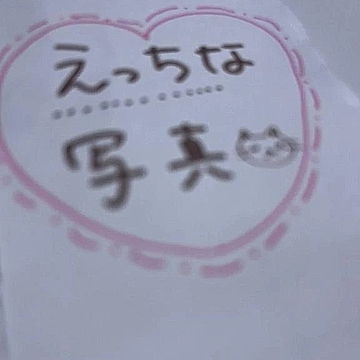 えっちな
写真